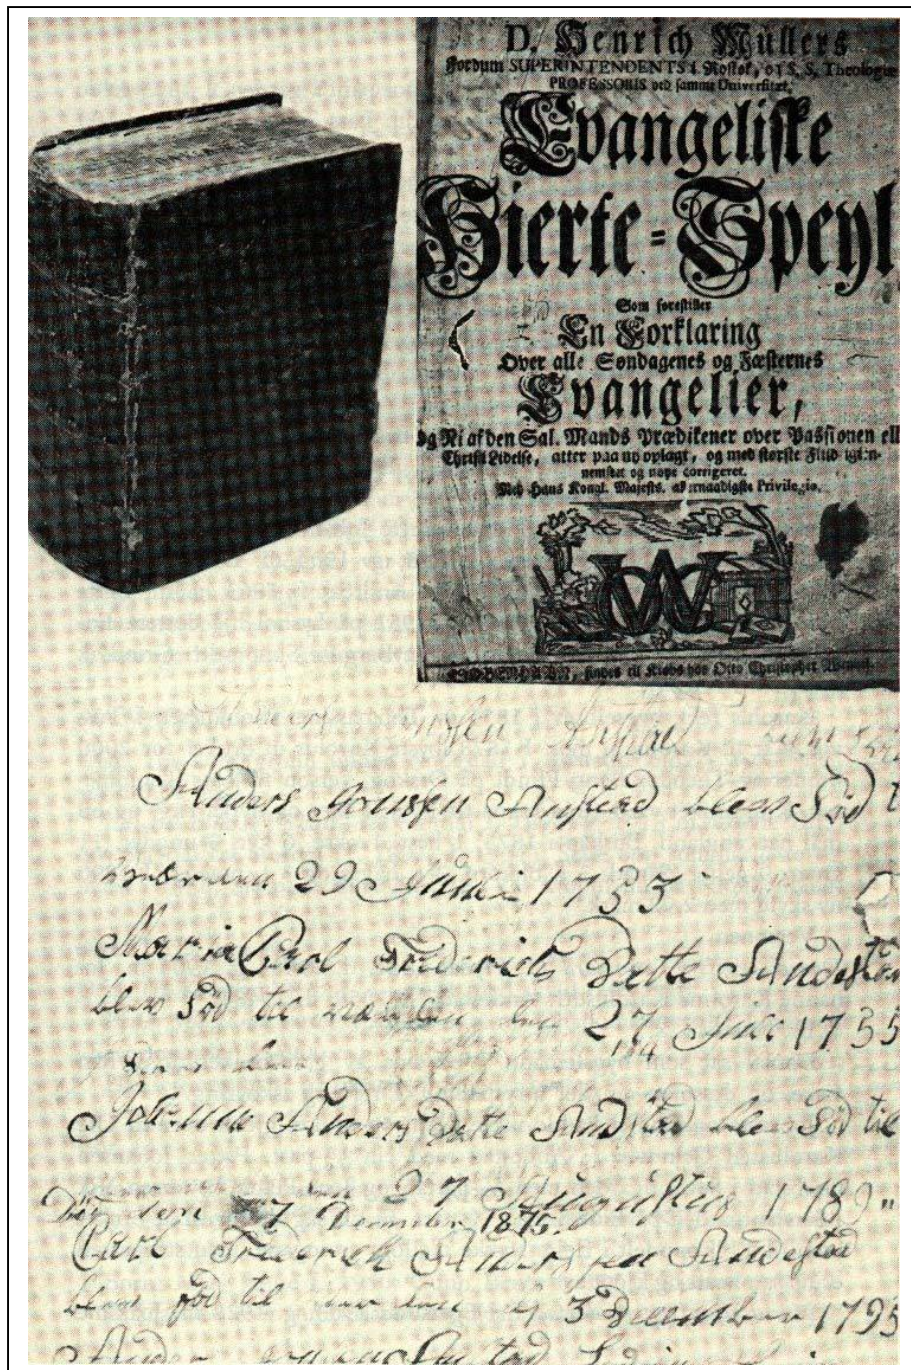 D. Henrich Müllers
Fordum SUPERINTENDENTS i Rostok, og S. S. Theologiæ
PROFESSORIS ved samme Universitet,
Evangeliske
Hierte-Speyl
Som forestiller
En Forklaring
Over alle Søndagenes og Fæsternes
Evangelier,
og Ni af den Sal. Mands Prædikener over Passionen ell
Christi Lidelse, atter paa ny oplagt, og med største Flid igien-
nemset og nøye corrigeret.
Med Hans Kongl. Majests. allernaadigste Privilegio.
KIØBENHAVN, findes til Kiøbs hos Otto Christopher
Anders Jonssen Anstad blew Fød t
den 29 Junii 1733
Maria Carl Friderichs Datte Andestad
blew Fød til den 27 Juli 1735
Johanne Anders Datte Andstad blew Fød til
27 Augustus 1789
Død den 7 December 1875.
Carl Friderich Anderssen Andestad
blew fød til 3 December 1795